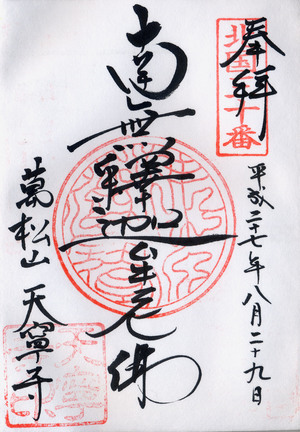 奉拝
北国三十番
平成二十七年八月二十九日
南無釋迦牟尼佛
萬松山 天寧寺